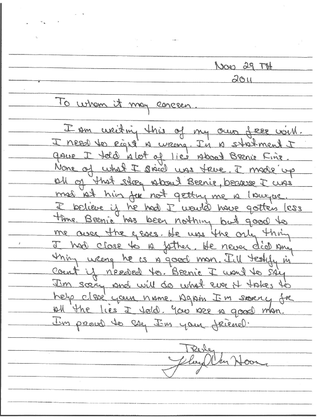 Nov 29 TH
2011
To whom it may concern.
I am writing this of my own free will.
I need to right a wrong. In a statment I
gave I told alot of lies about Bernie Fine.
None of what I said was true. I made up
all of that story about Bernie, because I was
mad at him for not getting me a lawyer.
I believe if he had I would have gotten less
time. Bernie has been nothing but good to
me over the years. He was the only thing
I had close to a father. He never did any
thing wrong he is a good man. I'll testify in
court if needed to. Bernie I want to say
I'm sorry and will do what ever it takes to
help clear your name. Again I'm sorry for
all the lies I told. You are a good man.
I'm proud to say I'm your friend.
Truly